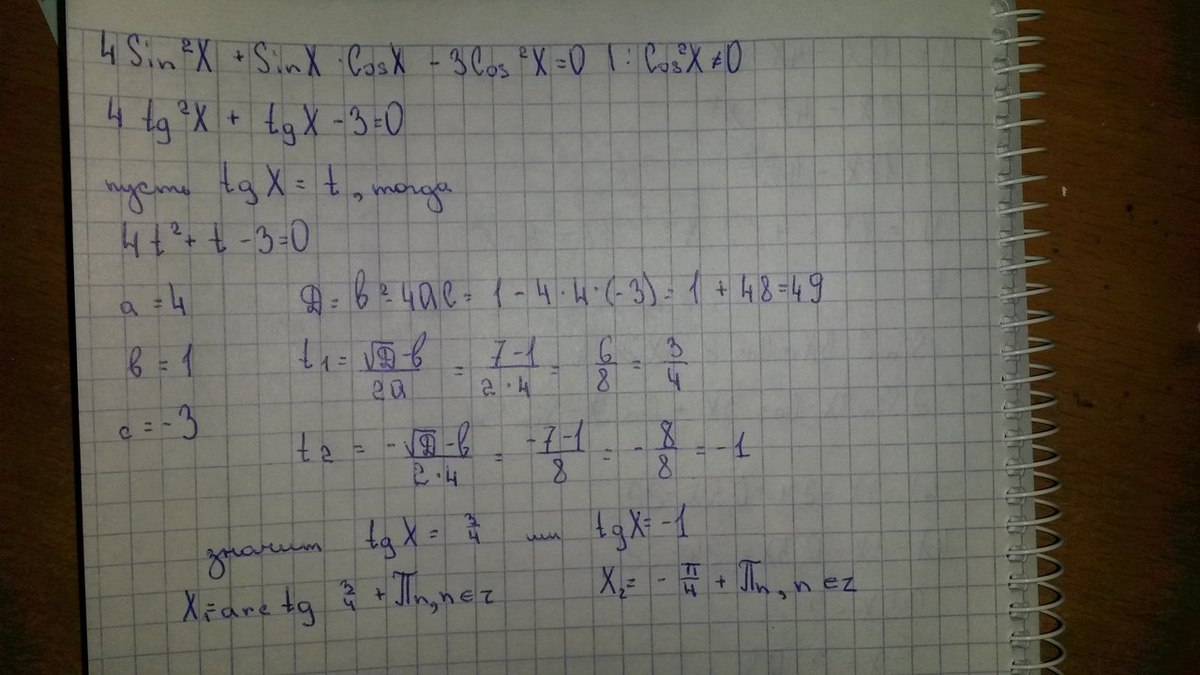 4 Sin²X + SinX · CosX - 3Cos²X = 0 | : Cos²X ≠ 0
4 tg²X + tgX - 3 = 0
пусть tg X = t, тогда
4t² + t - 3 = 0
a = 4 D = b² - 4ac = 1 - 4 · 4 · (-3) = 1 + 48 = 49
b = 1 t₁ = (√D - b)/(2a) = (7 - 1)/(2 · 4) = 6/8 = 3/4
c = -3
t₂ = (-√D - b)/(2 · 4) = (-7 - 1)/8 = -8/8 = -1
значит tg X = 3/4 или tg X = -1
X₁ = arc tg 3/4 + πn, n ∈ z X₂ = -π/4 + πn, n ∈ z